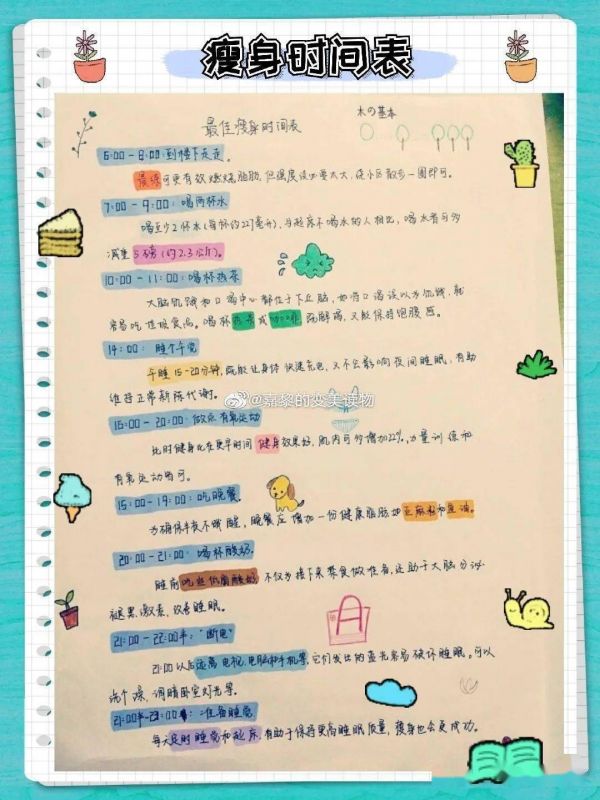 瘦身时间表
最佳瘦身时间表
木の基本
6:00-8:00:到楼下走走。
晨练可更有效燃烧脂肪,但强度没必要太大,绕小区散步一圈即可。
7:00-9:00:喝两杯水
喝至少2杯水(每杯约227毫升),与起床不喝水的人相比,喝水者可多
减重5磅(约2.3公斤)。
10:00-11:00:喝杯热茶
大脑饥饿和口渴中心都位于下丘脑,如将口渴误以为饥饿,就
容易吃垃圾食品。喝杯热茶或咖啡,既解渴,又能保持饱腹感。
14:00:睡个午觉
午睡15-20分钟,既能让身体快速充电,又不会影响夜间睡眠,有助
维持正常新陈代谢。
@嘉黎的变美读物
16:00-20:00:做点有氧运动
此时健身比在更早时间健身效果好,肌肉可多增加22%。力量训练和
有氧运动均可。
15:00-19:00:吃晚餐。
为确保半夜不饿醒,晚餐应增加一份健康脂肪如亚麻籽和豆油。
20:00-21:00:喝杯酸奶。
睡前吃些低脂酸奶不仅为接下来禁食做准备,还助于大脑分泌
褪黑激素,改善睡眠。
21:00-22:00半:"断电"
21:00以后远离电视、电脑和手机等,它们发出的蓝光容易破坏睡眠。可以
洗个澡,调暗卧室灯光等。
准备睡觉
每天定时睡觉和起床,有助于保持更高睡眠质量,瘦身也会更成功。